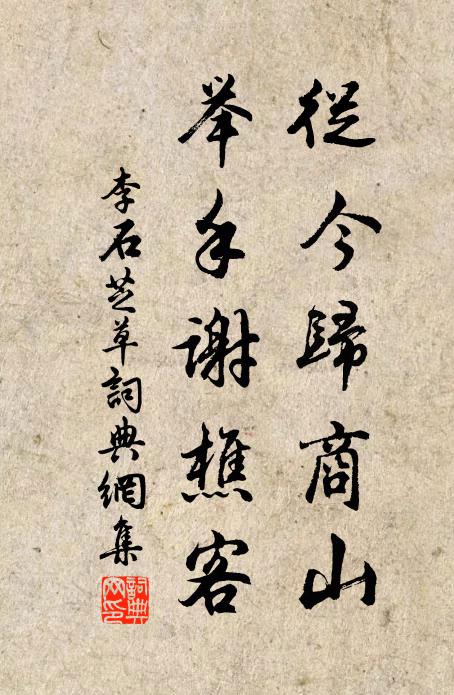 從今歸商山
举手謝樵客
李石芝草詞典網集
詞典
网印